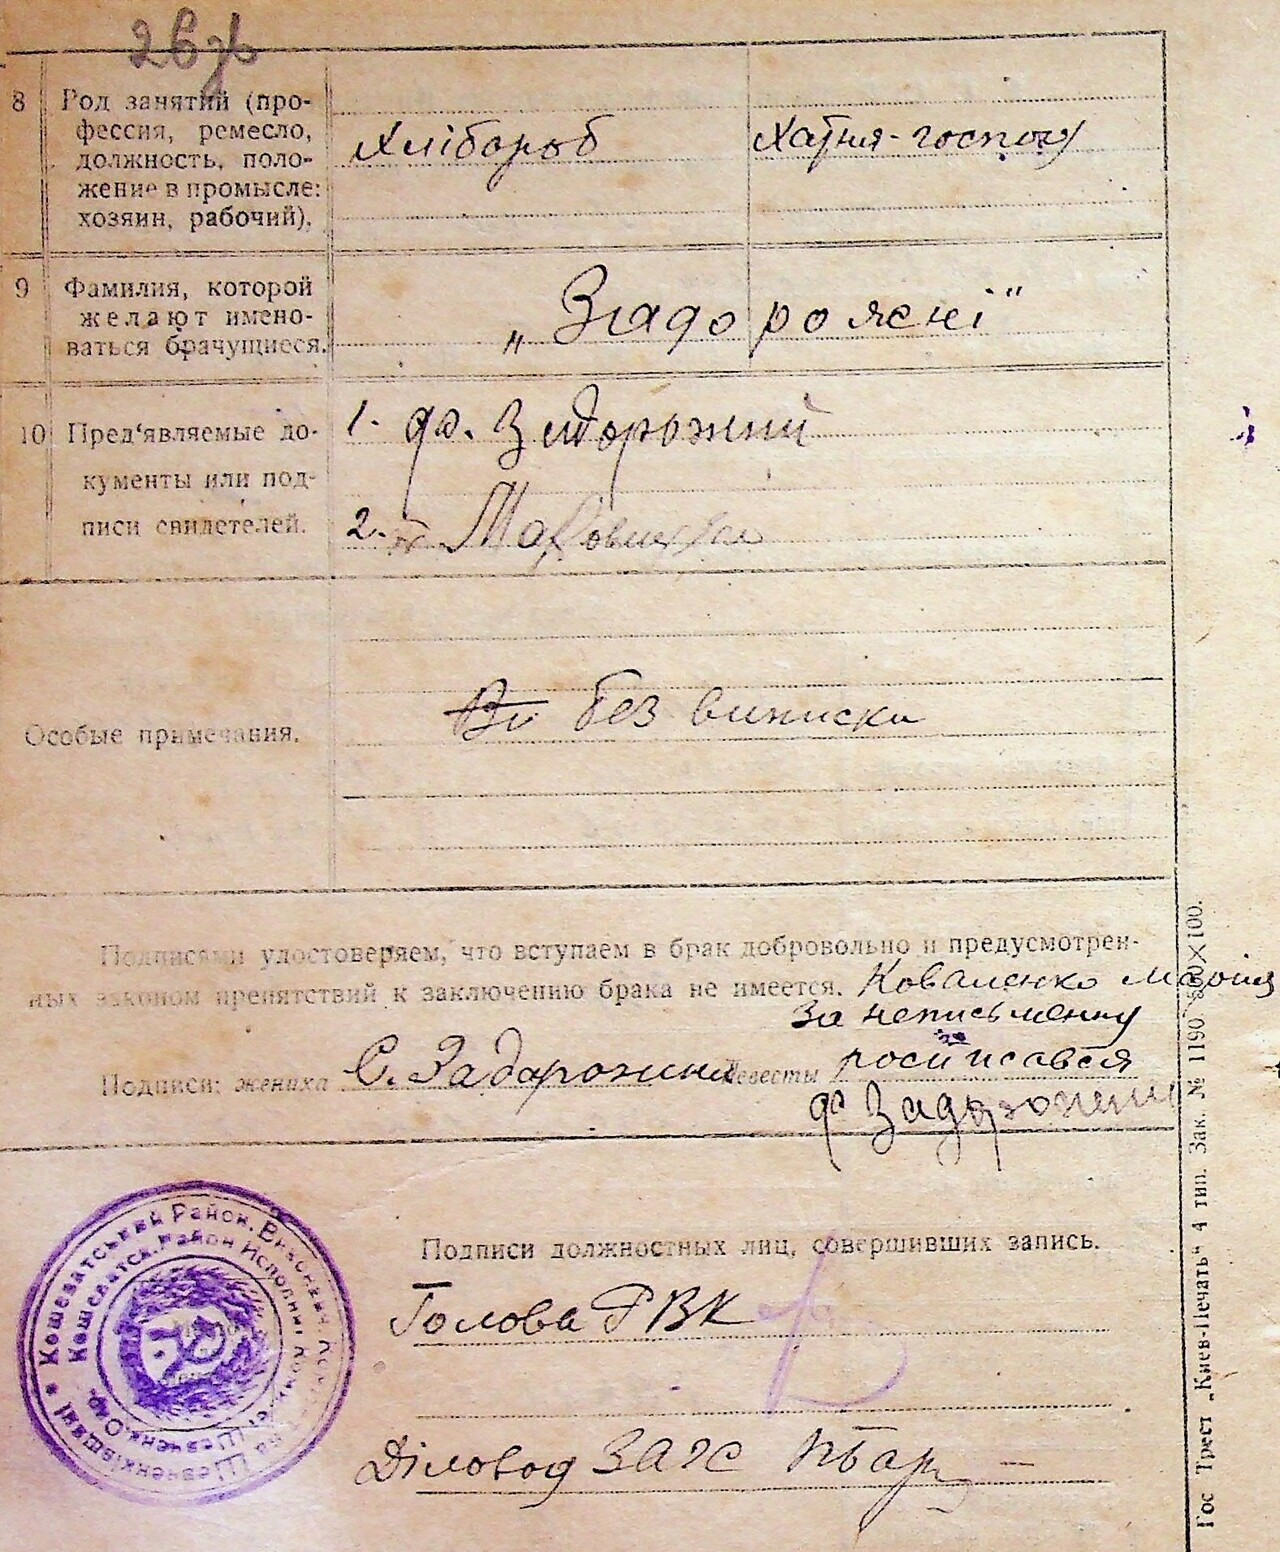 26
8 Род занятий (про-
фессия, ремесло,
должность, поло-
жение в промысле:
хозяин, рабочий).
Хлібороб
Хатня-господ
9 Фамилия, которой
желают имено-
ваться брачущиеся.
„Задорожні"
10 Пред'являемые до-
кументы или под-
писи свидетелей.
1. Задорожний
2.
Особые примечания.
Ви без виписки
Подписами удостоверяем, что вступаем в брак добровольно и предусмотрен-
ных законом препятствий к заключению брака не имеется. Коваленко Марія
за неписьменну
Подписи: жениха С. Задорожний невесты росписався
Задорожний
Подписи должностных лиц, совершивших запись.
Голова РВК
Діловод ЗАГС
Кошеватський Район. Виконавч. Комітет на Шевченківщині
Кошеватск. Район Исполнит. Комитет Шевченк. Окр.
Гос Трест „Киев-Печать" 4 тип. Зак. № 1190. 880×100.